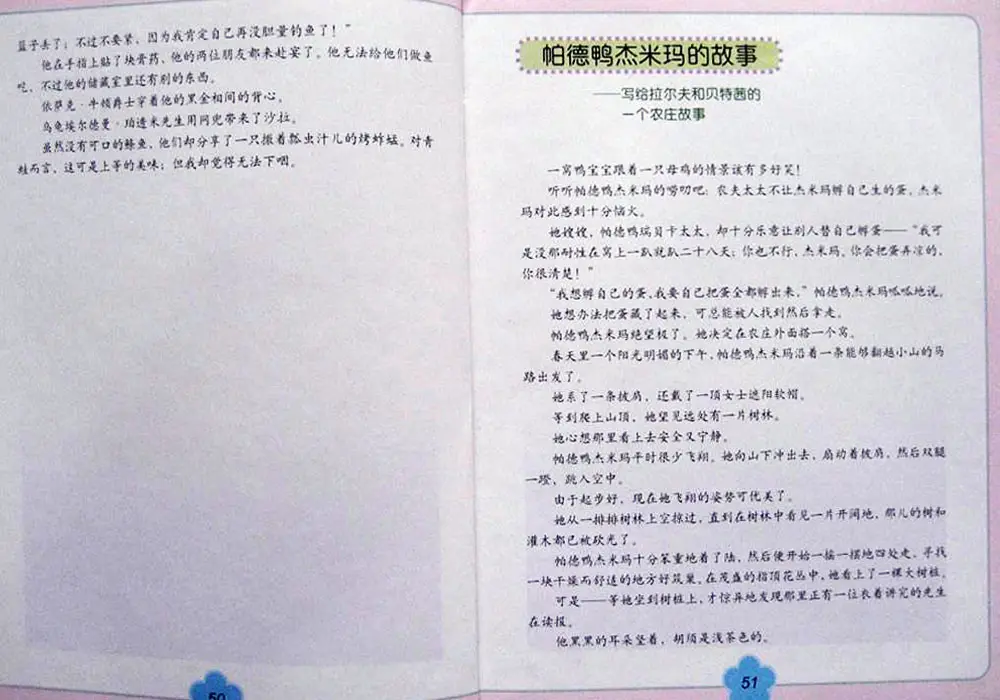 篮子丢了;不过不要紧,因为我肯定自己再没胆量钓鱼了!”
他在手指上贴了块膏药,他的两位朋友都来赴宴了。他无法给他们做鱼
吃,不过他的储藏室里还有别的东西。
依萨克·牛顿爵士穿着他的黑金相间的背心。
乌龟埃尔德曼·珀透米先生用网兜带来了沙拉。
虽然没有可口的鲦鱼,他们却分享了一只撒着瓢虫汁儿的烤蚱蜢。对青
蛙而言,这可是上等的美味;但我却觉得无法下咽。
50
帕德鸭杰米玛的故事
——写给拉尔夫和贝特茜的
一个农庄故事
一窝鸭宝宝跟着一只母鸡的情景该有多好笑!
听听帕德鸭杰米玛的唠叨吧:农夫太太不让杰米玛孵自己生的蛋,杰米
玛对此感到十分恼火。
她嫂嫂,帕德鸭瑞贝卡太太,却十分乐意让别人替自己孵蛋——“我可
是没那耐性在窝上一趴就趴二十八天;你也不行,杰米玛。你会把蛋弄凉的,
你很清楚!”
“我想孵自己的蛋,我要自己把蛋全都孵出来,”帕德鸭杰米玛呱呱地说。
她想办法把蛋藏了起来,可总能被人找到然后拿走。
帕德鸭杰米玛绝望极了。她决定在农庄外面搭一个窝。
春天里一个阳光明媚的下午,帕德鸭杰米玛沿着一条能够翻越小山的马
路出发了。
她系了一条披肩,还戴了一顶女士遮阳软帽。
等到爬上山顶,她望见远处有一片树林。
她心想那里看上去安全又宁静。
帕德鸭杰米玛平时很少飞翔。她向山下冲出去,扇动着披肩,然后双腿
一蹬,跳入空中。
由于起步好,现在她飞翔的姿势可优美了。
她从一排排树林上空掠过,直到在树林中看见一片开阔地,那儿的树和
灌木都已被砍光了。
帕德鸭杰米玛十分笨重地着了陆,然后便开始一摇一摆地四处走,寻找
一块干燥而舒适的地方好筑巢。在茂盛的指顶花丛中,她看上了一棵大树桩。
可是——等她坐到树桩上,才惊异地发现那里正有一位衣着讲究的先生
在读报。
他黑黑的耳朵竖着,胡须是浅茶色的。
51